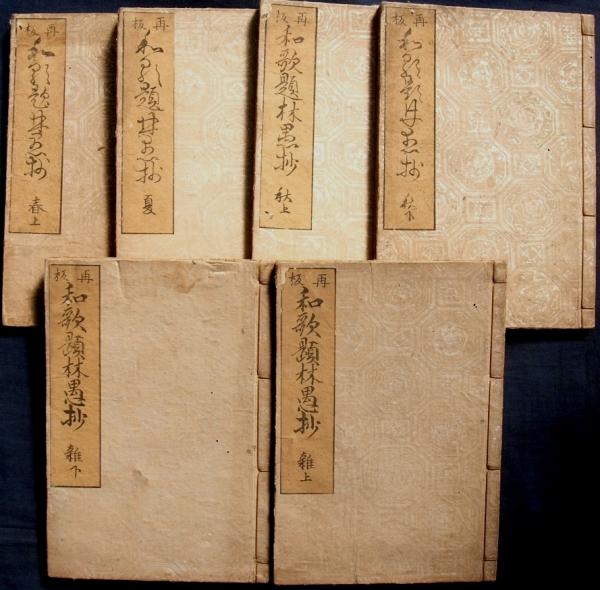 再板
和歌題林愚抄
春上
再板
和歌題林愚抄
夏
再板
和歌題林愚抄
秋上
再板
和歌題林愚抄
秋下
再板
和歌題林愚抄
雑下
再板
和歌題林愚抄
雑上